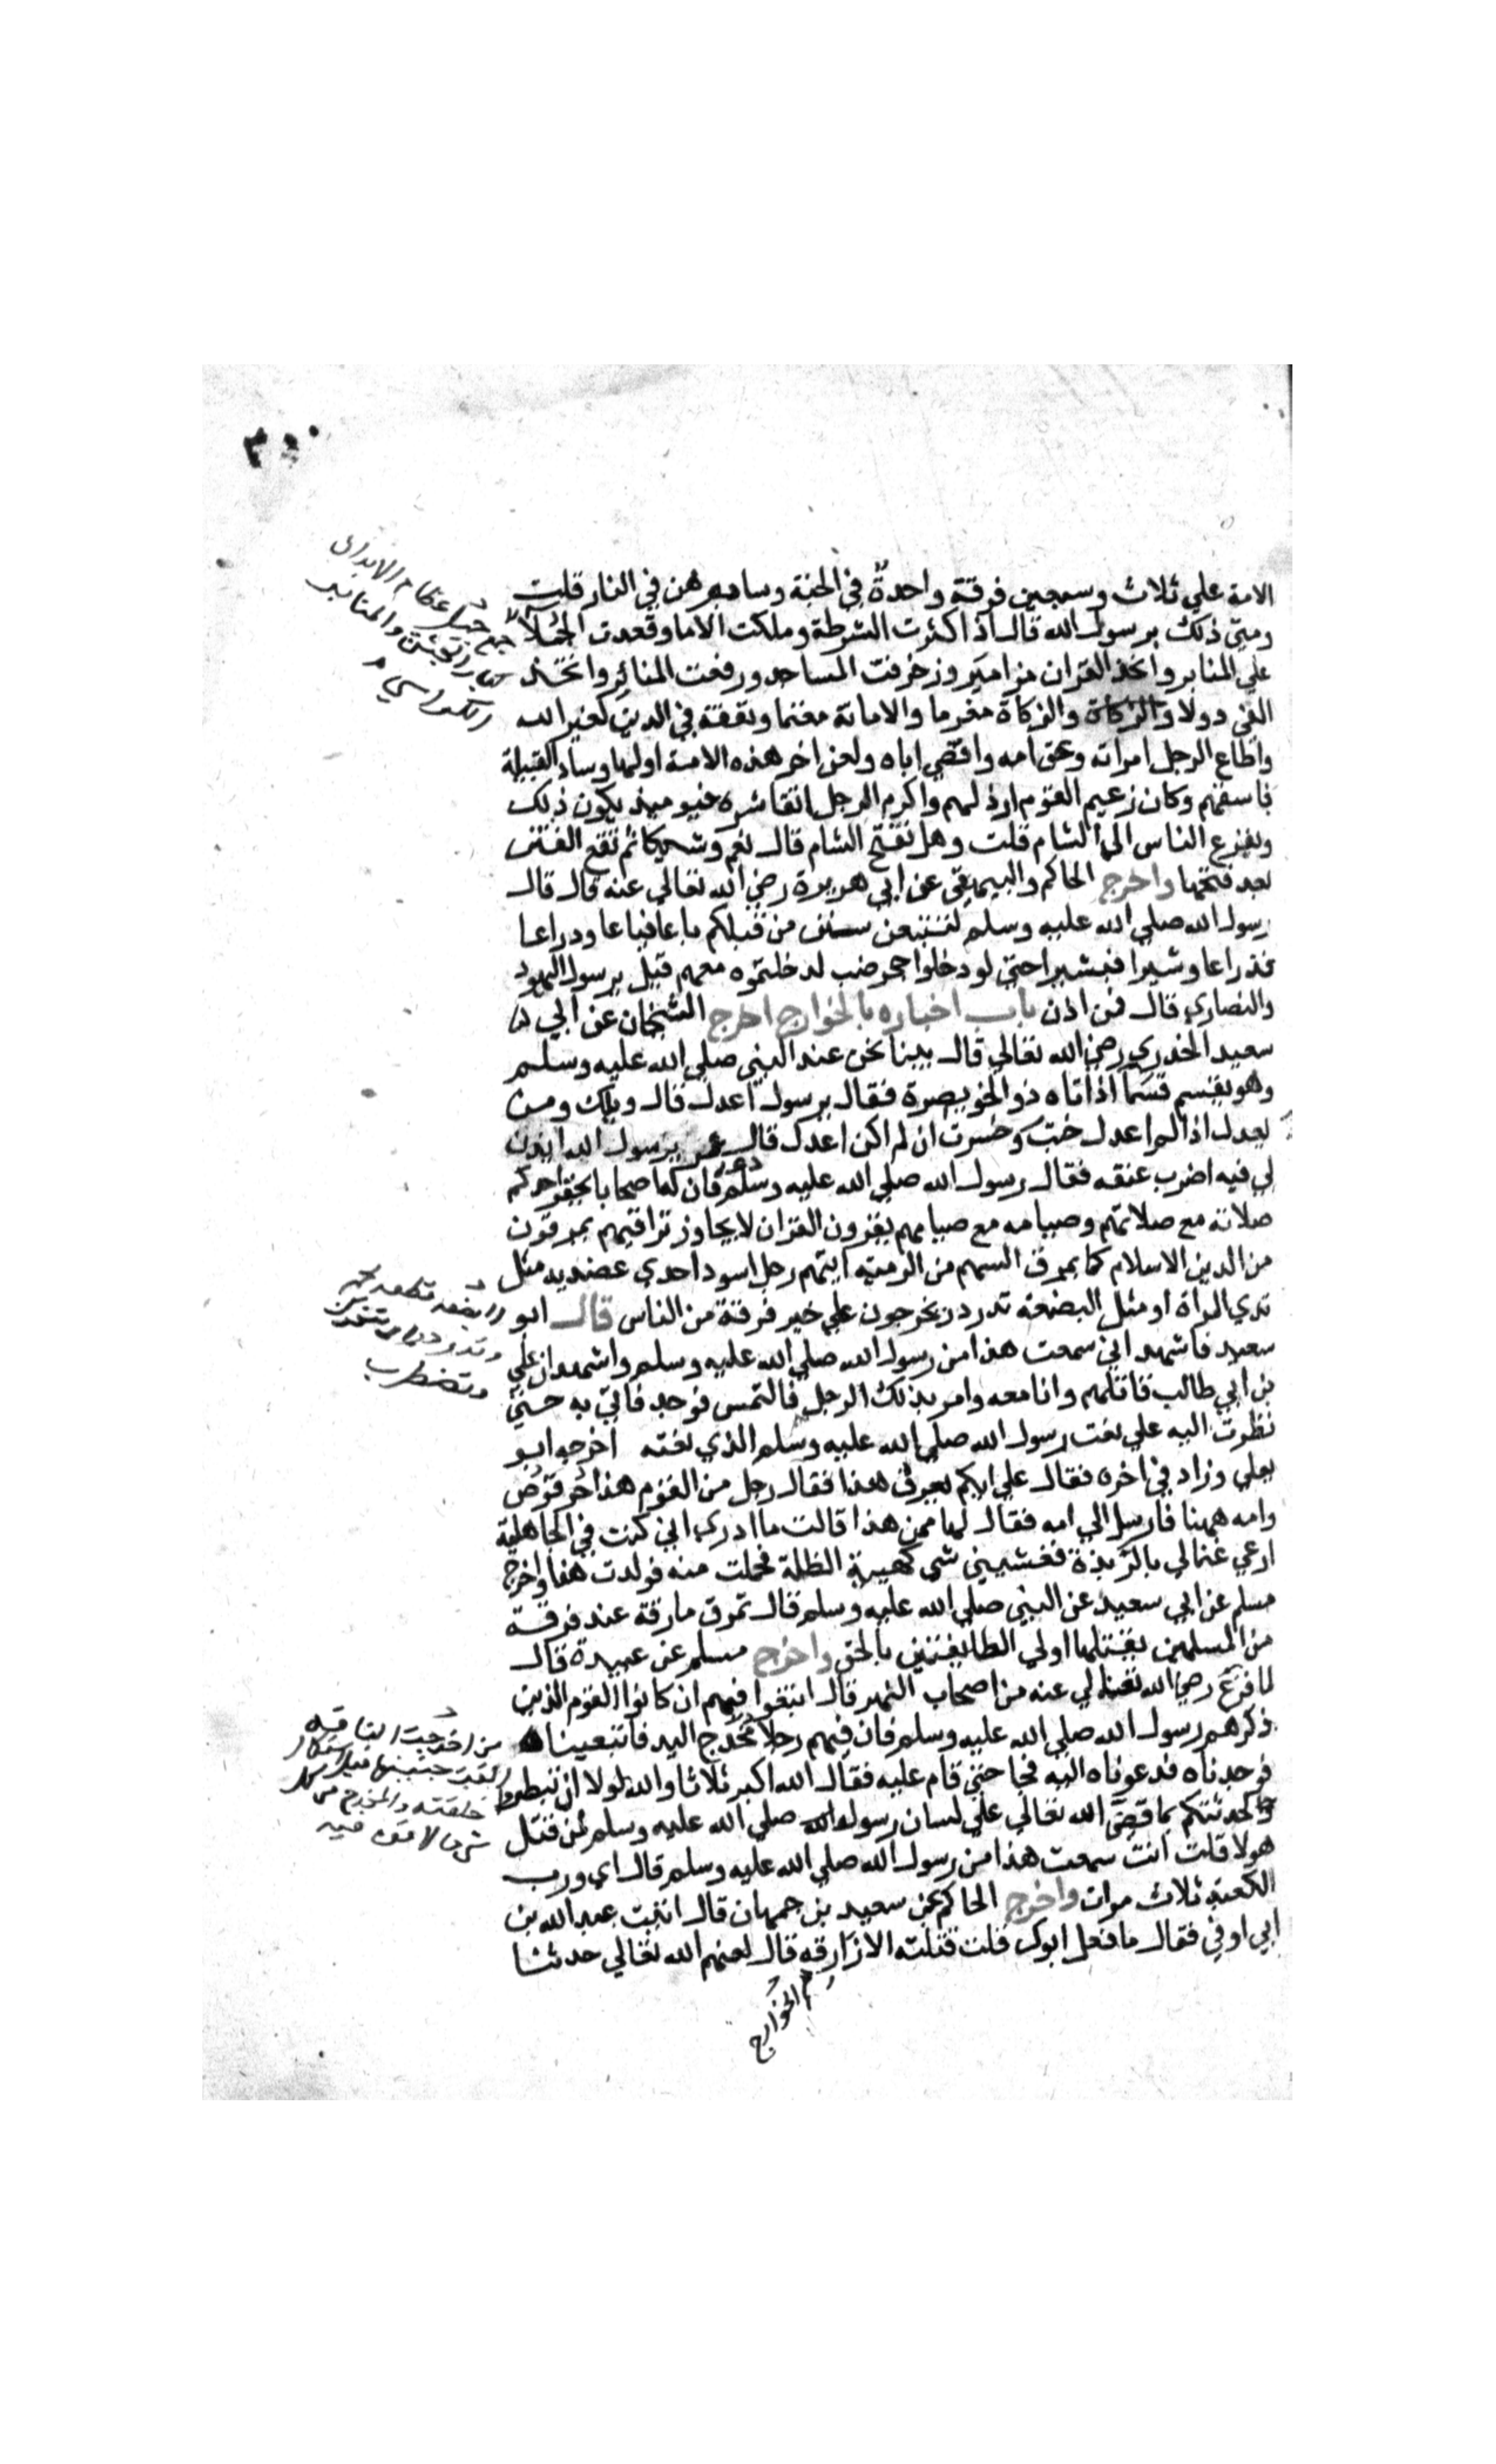 ٣٠٠
الامة علي ثلاث وسبعين فرقة واحدة في الجنة وسايرهن في النار قلت
ومتي ذلك يرسول الله قال اذا كثرت الشرطة وملكت الاما وقعدت الحملا
علي المنابر واتخذ القران مزامير وزخرفت المساجد ورفعت المنائر واتخذ
الفئ دولا والزكاة والزكاة مغرما والامانة مغنما وتفقه في الدين لغير الله
واطاع الرجل امراته وعق امه واقصي اباه ولعن اخر هذه الامة اولها وساد القبيلة
فاسقهم وكان زعيم القوم ارذلهم واكرم الرجل اتقا شره فيوميذ يكون ذلك
ويفزع الناس الي الشام قلت وهل تفتح الشام قال نعم وشيكا ثم تقع الفتن
بعد فتحها واخرج الحاكم والبيهقي عن ابي هريرة رضي الله تعالي عنه قال قال
رسول الله صلي الله عليه وسلم لتتبعن سنن من قبلكم باعا فباعا ودراعا
فذراعا وشبرا فبشبرا حتي لو دخلوا جحر ضب لدخلتموه معهم قيل يرسول اليهود
والنصاري قال فمن اذن باب اخباره بالخوارج اخرج الشيخان عن ابي
سعيد الخدري رضي الله تعالي قال بينا نحن عند النبي صلي الله عليه وسلم
وهو يقسم قسما اذ اتاه ذو الخويصرة فقال يرسول اعدل قال ويلك ومن
يعدل اذا لم اعدل خبت وخسرت ان لم اكن اعدل قال عمر يرسول الله ايذن
لي فيه اضرب عنقه فقال رسول الله صلي الله عليه وسلم دعه فان له اصحابا يحقر احدكم
صلاته مع صلاتهم وصيامه مع صيامهم يقرون القران لا يجاوز تراقيهم يمرقون
من الدين الاسلام كما يمرق السهم من الرمية ايتهم رجل اسود احدي عضديه مثل
ثدي المراة او مثل البضعة تدردر يخرجون علي خير فرقة من الناس قال ابو
سعيد فاشهد اني سمعت هذا من رسول الله صلي الله عليه وسلم واشهد ان علي
بن ابي طالب قاتلهم وانا معه وامر بذلك الرجل فالتمس فوجد فاتي به حتي
نظرت اليه علي نعت رسول الله صلي الله عليه وسلم الذي نعته اخرجه ابو
يعلي وزاد في اخره فقال علي ايكم يعرف هذا فقال رجل من القوم هذا حرقوص
وامه ههنا فارسل الي امه فقال لها ممن هذا قالت ما ادري اني كنت في الجاهلية
ارعي غنما لي بالربذة فغشيني شي كهيية الظلة فحملت منه فولدت هذا واخرج
مسلم عن ابي سعيد عن النبي صلي الله عليه وسلم قال تمرق مارقة عند فرقة
من المسلمين يقتلها اولي الطايفتين بالحق واخرج مسلم عن عبيدة قال
لما فرغ رضي الله تعالي عنه من اصحاب النهر قال ابتغوا فيهم ان كانوا القوم الذين
ذكرهم رسول الله صلي الله عليه وسلم فان فيهم رجلا مخدج اليد فاتبعيناه
فوجدناه فدعوناه اليه فجا حتي قام عليه فقال الله اكبر ثلاثا والله لولا ان تبطروا
لحدثتكم بما قضي الله تعالي علي لسان رسوله صلي الله عليه وسلم لمن قتل
هولا قلت انت سمعت هذا من رسول الله صلي الله عليه وسلم قال اي ورب
الكعبة ثلاث مرات واخرج الحاكم عن سعيد بن جمهان قال اتيت عبد الله بن
ابي اوفي فقال ما فعل ابوك قلت قتلته الازارقة قال لعنهم الله تعالي حدثنا
هم الخوارج
والبضعة قطعة لحم
وتضطرب